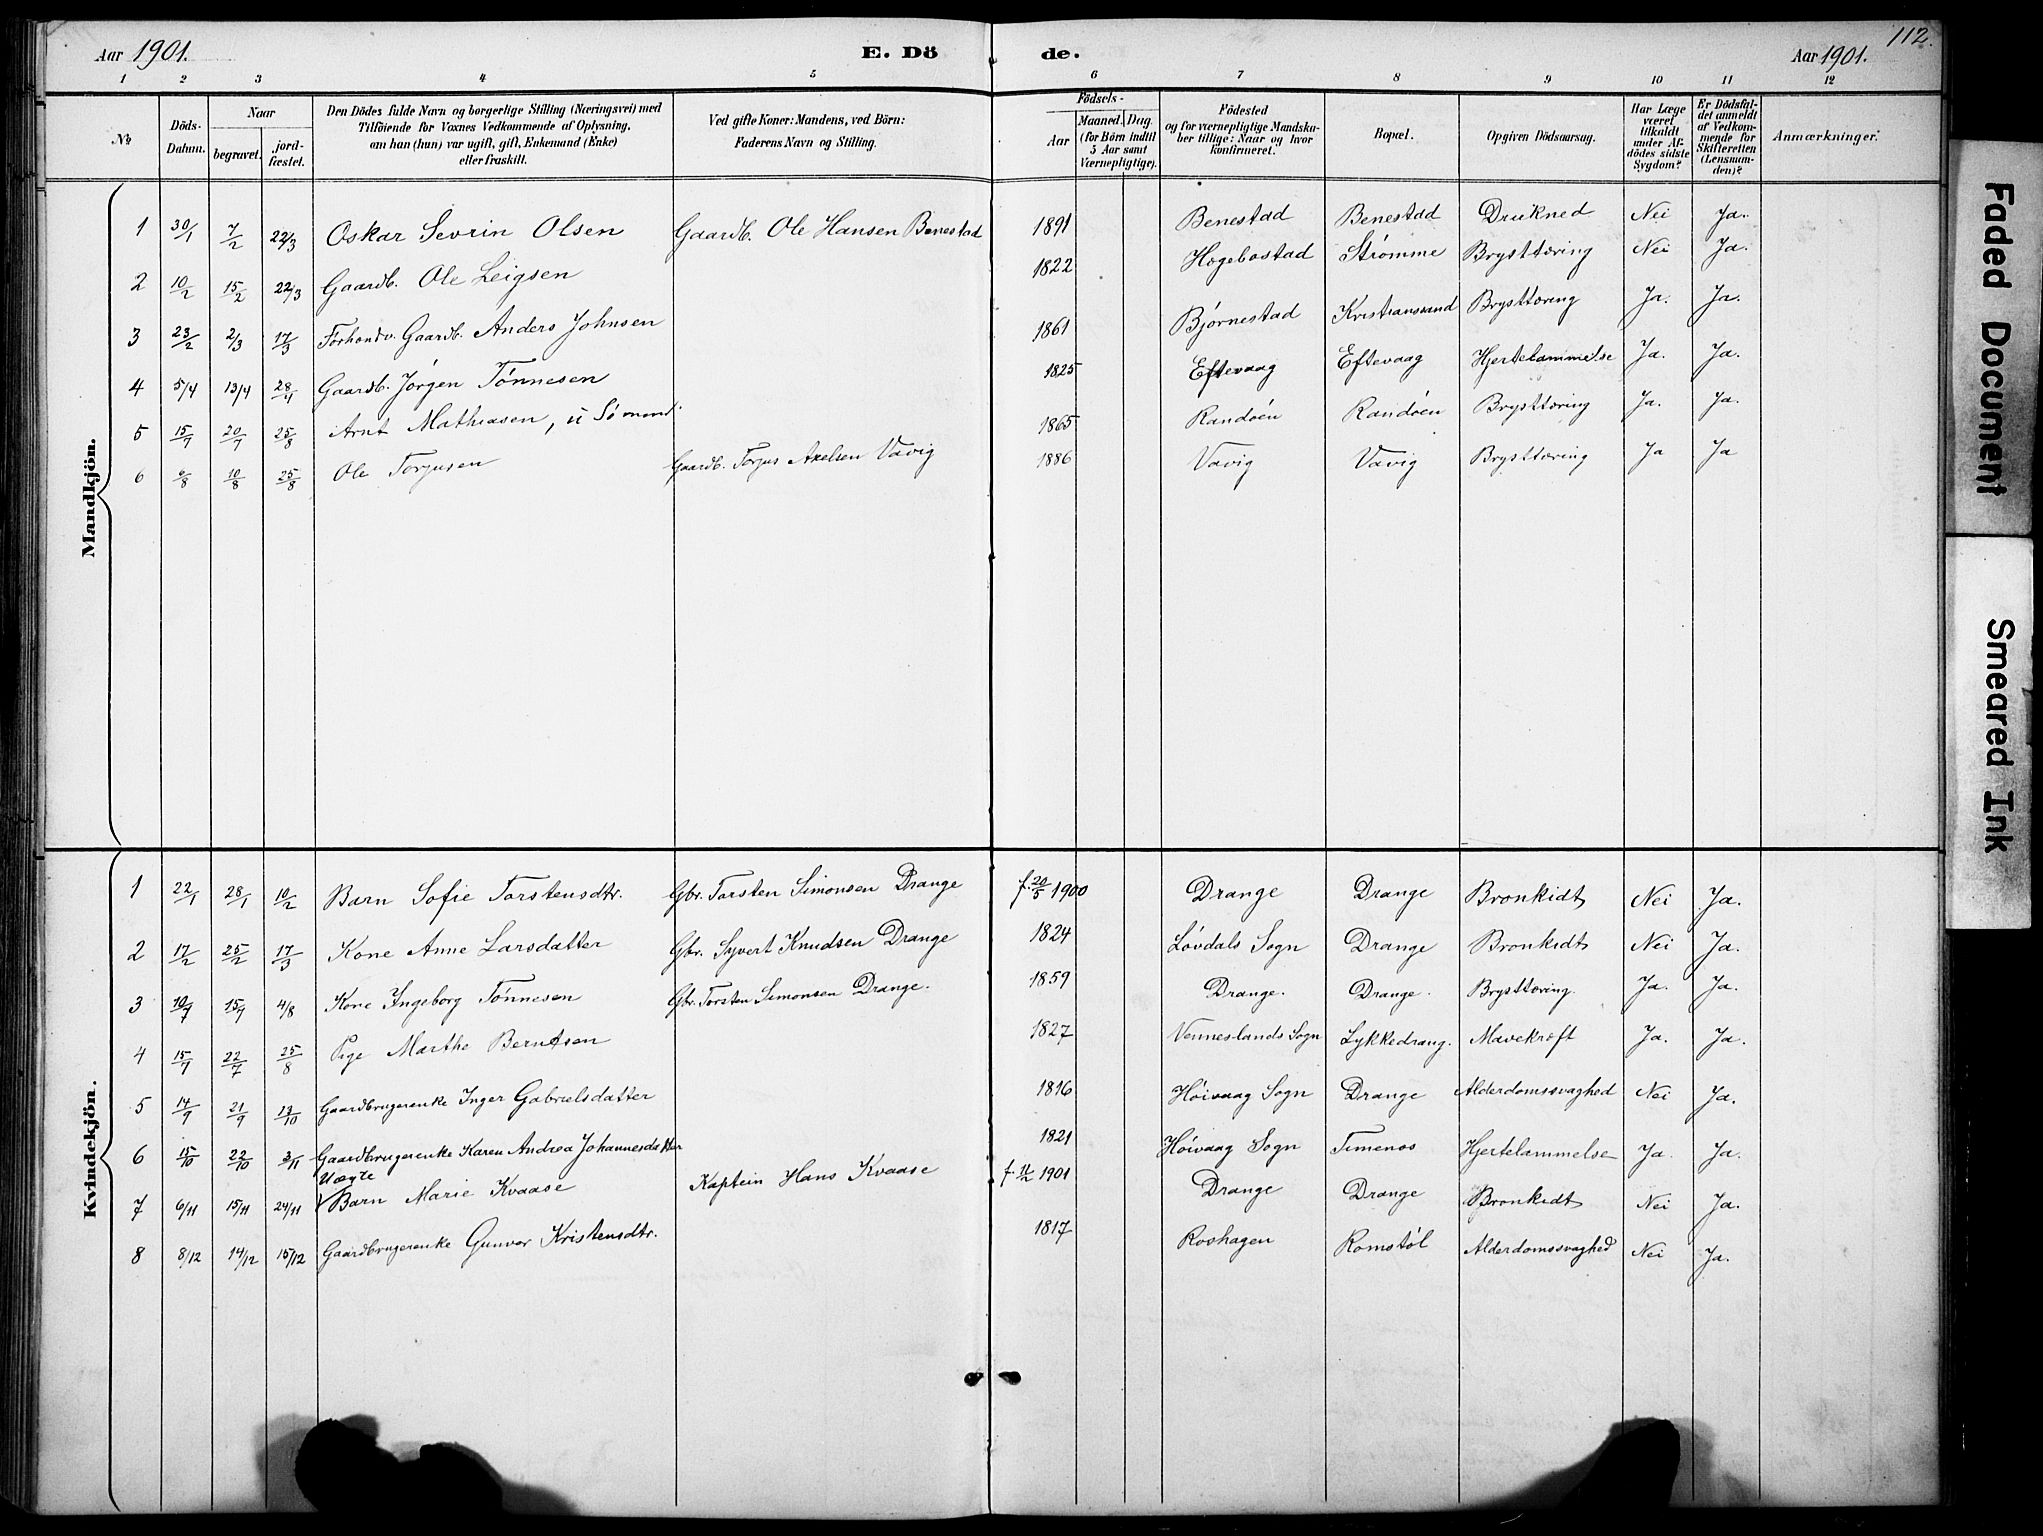 112.
Aar 1901. E. Dö de. Aar 1901.
1 2 3 4 5 6 7 8 9 10 11 12
No Döds-Datum. Naar begravet. jord-fæstet. Den Dödes fulde Navn og borgerlige Stilling (Næringsvei) med Tilföiende for Voxnes Vedkommende af Oplysning, om han (hun) var ugift, gift, Enkemand (Enke) eller fraskilt. Ved gifte Koner: Mandens, ved Börn: Faderens Navn og Stilling. Födsels- Aar Maaned. Dag. (for Börn indtil 5 Aar samt Værnepligtige). Födested og for værnepligtige Mandskaber tillige: Naar og hvor konfirmeret. Bopæl. Opgiven Dödsaarsag. Har Læge været tilkaldt under Afdödes sidste Sygdom? Er Dödsfaldet anmeldt af Vedkommende for Skifteretten (Lensmanden)? Anmærkninger.
Mandkjön.
1 30/1 7/2 22/3 Oskar Sevrin Olsen Gaardb. Ole Hansen Benestad 1891 Benestad Benestad Drukned Nei Ja.
2 10/2 15/2 22/3 Gaardb. Ole Leigsen 1822 Hægebostad Strømme Brysttæring Nei Ja.
3 23/2 2/3 17/3 Forhendv. Gaardb. Anders Johnsen 1861 Bjørnestad Kristianssand Brysttæring Ja. Ja.
4 5/4 13/4 28/4 Gaardb. Jørgen Tønnesen 1825 Eftevaag Eftevaag Hjertelammelse Ja. Ja.
5 15/7 20/7 25/8 Arnt Mathiasen, u Sømand. 1865 Randøen Randøen Brysttæring Ja. Ja.
6 6/8 10/8 25/8 Ole Torjusen Gaardb. Torjus Axelsen Vavig 1886 Vavig Vavig Brysttæring Ja Ja
Kvindekjön.
1 22/1 28/1 10/2 Barn Sofie Torstensdtr. Gbr. Torsten Simonsen Drange f. 20/5 1900 Drange Drange Bronkidt Nei Ja.
2 17/2 25/2 17/3 Kone Anne Larsdatter Gbr. Syvert Knudsen Drange 1824 Løvdals Sogn Drange Bronkidt Nei Ja.
3 10/7 15/7 4/8 Kone Ingeborg Tønnesen Gbr. Torsten Simonsen Drange. 1859 Drange. Drange. Brysttæring. Ja. Ja.
4 15/7 22/7 25/8 Pige Marthe Berntsen 1827 Venneslands Sogn Lykkedrang. Mavekræft Ja. Ja.
5 14/9 21/9 13/10 Gaardbrugerenke Inger Gabrielsdatter 1816 Høivaag Sogn Drange Alderdomssvaghed Nei Ja.
6 15/10 22/10 3/11 Gaardbrugerenke Karen Andrea Johannesdatter 1821 Høivaag Sogn Timenes Hjertelammelse Ja. Ja.
Uægte
7 6/11 15/11 24/11 Barn Marie Kvaase Kaptein Hans Kvaase f. 11/2 1901 Drange Drange Bronkidt Nei Ja.
8 8/12 14/12 15/12 Gaardbrugerenke Gunvor Kristensdtr. 1817 Roshagen Romstøl Alderdomssvaghed Nei Ja.
Faded Document
Smeared Ink